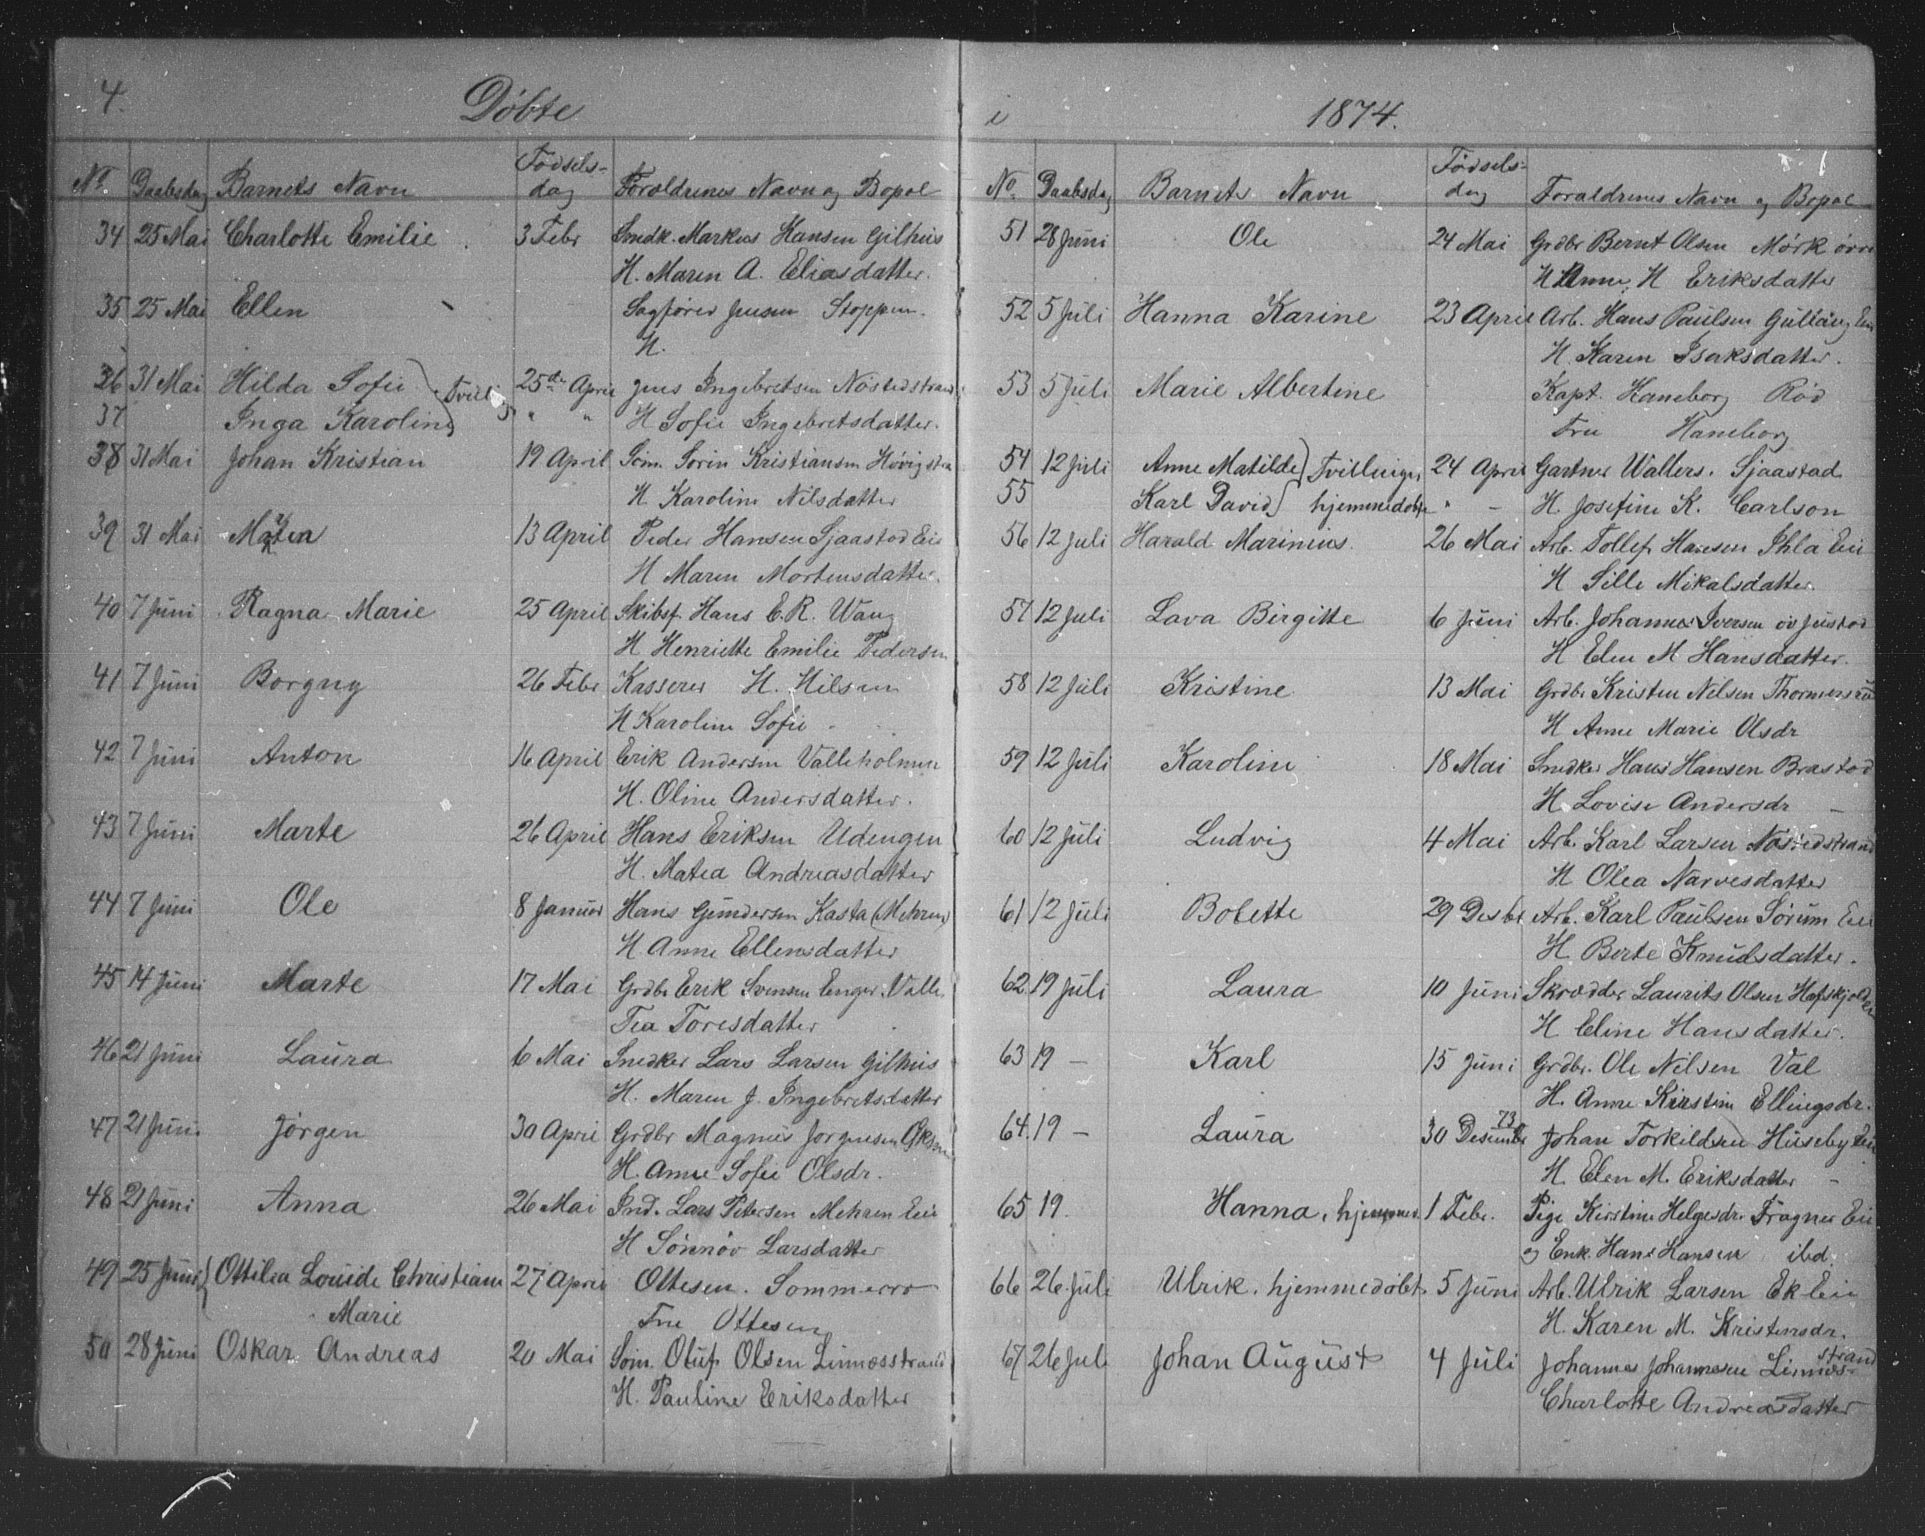 4.
Døbte
No. Daabsdag Barnets Navn Fødsels-dag Forældrenes Navn og Bopæl
34 25 Mai Charlotte Emilie 3 Febr Snedk. Markus Hansen Gilhus
H. Maren A. Eliasdatter.
35 25 Mai Ellen Sagfører Jensen Stoppen.
H.
36 31 Mai Hilda Sofie } Tvill. 25de April Jens Ingebretsen Nøstedstrand
37 Inga Karoline " " H Sofie Ingebretsdatter.
38 31 Mai Johan Kristian 19 April Søm. Sørin Kristiansen
H Karoline Nilsdatter
39 31 Mai 13 April Peder Hansen Sjaastad Eie
H Maren Mortensdatter.
40 7 Juni Ragna Marie 25 April Skibsf. Hans E. R. Wang
H Henriette Emilie Pedersen
41 7 Juni Borgny 26 Febr Kasserer H. Nilsen
H Karoline Sofie
42 7 Juni Anton 16 April Erik Andersen Valleholmen
H. Oline Andersdatter.
43 7 Juni Marte 26 April Hans Eriksen Udengen
H. Matea Andreasdatter
44 7 Juni Ole 8 Januar Hans Gundersen Kasta (Mehren)
H Anne Ellensdatter
45 14 Juni Marte 17 Mai Grdbr Erik Svensen Enger. Valle.
Tea Toresdatter
46 21 Juni Laura 6 Mai Snedker Lars Larsen Gilhus
H. Maren J. Ingebretsdatter
47 21 Juni Jørgen 30 April Grdbr Magnus Jørgensen
H. Anne Sofie Olsdr.
48 21 Juni Anna 26 Mai Ind. Lars Petersen Mehren Eie
H Sønnøv Larsdatter
49 25 Juni { Ottilia Louide Christiane 27 April Ottesen. Sommerro
Marie Frue Ottesen
50 28 Juni Oskar Andreas 20 Mai Søm. Oluf Olsen Linnæsstrand
H. Pauline Eriksdatter
i 1874.
No. Daabsdag Barnets Navn Fødsels-dag Forældrenes Navn og Bopæl
51 28 Juni Ole 24 Mai Grdbr Bernt Olsen Mørk øvre
H Anne H Eriksdatter
52 5 Juli Hanna Karine 23 April Arb. Hans Paulsen Gullaug Eie
H. Karen Isaksdatter.
53 5 Juli Marie Albertine Kapt. Haneborg Rød
Frue Haneborg
54 12 Juli Anne Matilde } Tvillinger, 24 April Gartner Walters. Sjaastad
55 Karl David } hjemmedøbte " - H. Josefine K. Carlson
56 12 Juli Harald Marinius. 26 Mai Arb. Tollef Hansen Ihla Eie
H Sille Mikalsdatter.
57 12 Juli Lava Birgitte 6 Juni Arb. Johannes Iversen øv Justad
H Elen M Hansdatter.
58 12 Juli Kristine 13 Mai Grdbr Kristen Nilsen
H Anne Marie Olsdr
59 12 Juli Karoline 18 Mai Snedker Hans Hansen Brastad
H Lovise Andersdr -
60 12 Juli Ludvig 4 Mai Arb. Karl Larsen Nøstedstrand
H Olea Narvesdatter
61 12 Juli Bolette 29 Desbr Arb. Karl Paulsen Sørum Eie
H Berte Knudsdatter.
62 19 Juli Laura 10 Juni Skrædder Laurits Olsen
H Eline Hansdatter.
63 19 - Karl 15 Juni Grdbr. Ole Nilsen Val
H. Anne Kirstine Ellingsdr.
64. 19 - Laura 30 Desember 73 Johan Torkildsen Huseby Eie
H. Elen M. Eriksdatter -
65 19. Hanna, hjemmed. 1 Febr. Pige Kirstine Helgesdr. Fragnes Eie
og Enk. Hans Hansen ibd.
66 26 Juli Ulrik, hjemmedøbt. 5 Juni Arb. Ulrik Larsen Ek Eie
H. Karen M. Kristensdr.
67 26 Juli Johan August 4 Juli Johannes Johannesen Linnæs-strand
Charlotte Andreasdatter